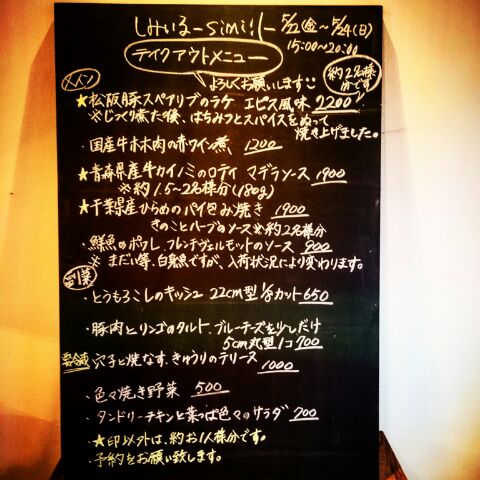 しみいる-simi:l- 5/22(金)~5/24(日)
15:00~20:00
テイクアウトメニュー
よろしくお願いします
メイン
約2名様分です
★松阪豚スペアリブのラケ エピス風味 2200
※じっくり煮た後、はちみつとスパイスをぬって
焼き上げました。
・国産牛ホホ肉の赤ワイン煮 1200
★青森県産牛カイノミのロティ マデラソース 1900
※約1.5~2名様分(180g)
★千葉県産ひらめのパイ包み焼き 1900
きのことハーブのソース※約2名様分
・鮮魚のポワレ フレンチヴェルモットのソース 900
※まだい等、白身魚ですが、入荷状況により変わります。
副菜
・とうもろこしのキッシュ 22cm型 1/8カット 650
・豚肉とリンゴのタルト ブルーチーズを少しだけ
5cm丸型1コ 700
要冷蔵 穴子と焼なす、きゅうりのテリーヌ
1000
・色々焼き野菜 500
・タンドリーチキンと葉っぱ色々のサラダ 700
・★印以外は、約お1人様分です。
・予約をお願い致します。